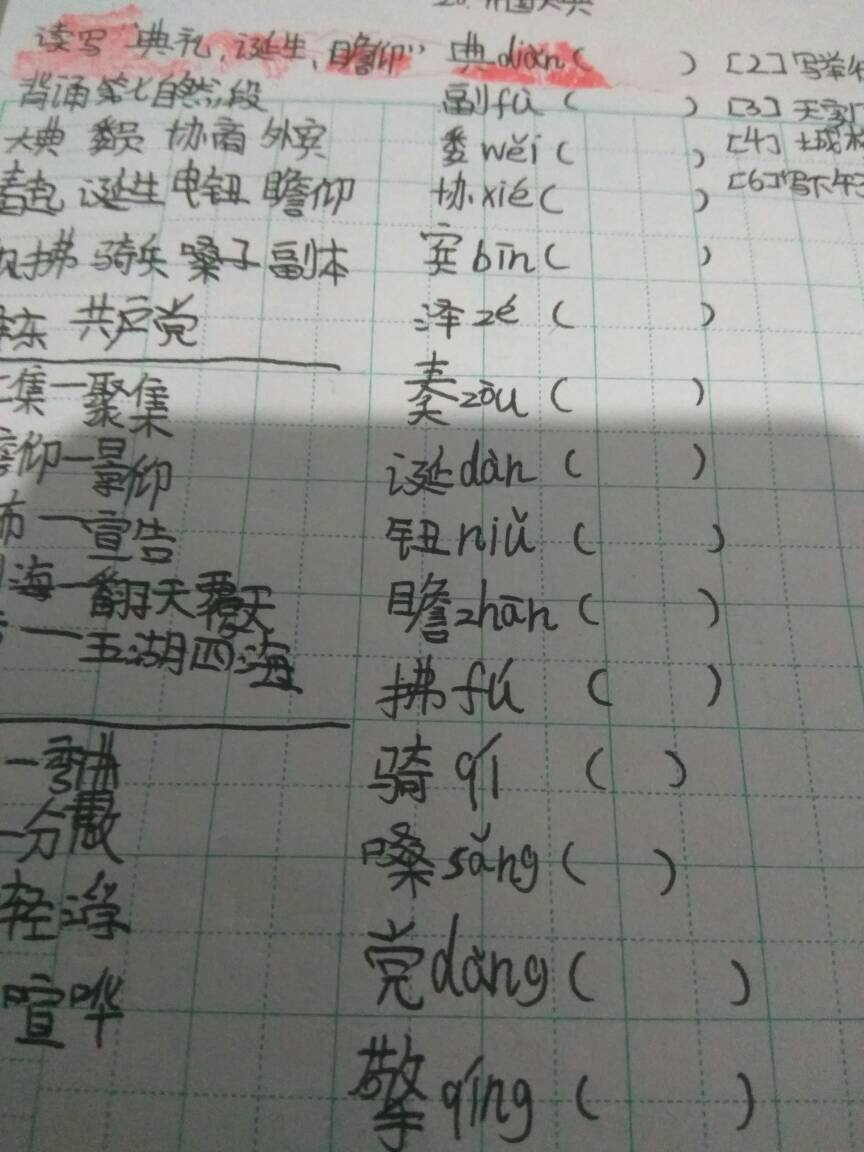 读写"典礼,诞生,瞻仰" 典diǎn( ) [2]写举
背诵第七自然段 副fù( ) [3]天
大典 委员 协商 外宾 委wěi( ) [4]城
诞生 电钮 瞻仰 协xié( ) [6]写下午
拂 骑兵 嗓子 副本 宾bīn( )
东 共产党 泽zé( )
集一聚集 奏zòu( )
仰一景仰 诞dàn( )
布一宣告 钮niǔ( )
海一翻天覆天 瞻zhān( )
一五湖四海 拂fú( )
一弯曲 骑qí( )
一分散 嗓sǎng( )
轻浮 党dǎng( )
喧哗 擎qíng( )